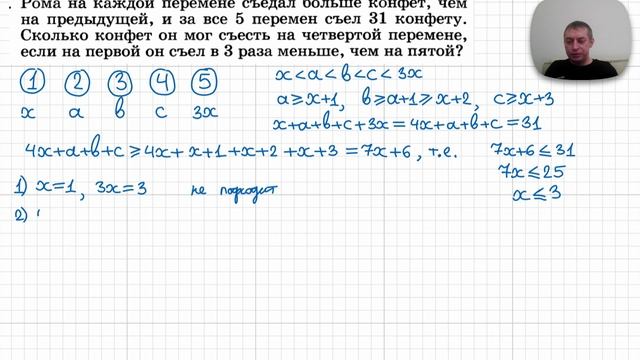 . Рома на каждой перемене съедал больше конфет, чем
на предыдущей, и за все 5 перемен съел 31 конфету.
Сколько конфет он мог съесть на четвертой перемене,
если на первой он съел в 3 раза меньше, чем на пятой?
1 2 3 4 5
x a в c 3x
x<a<в<c<3x
a⩾x+1, в⩾a+1⩾x+2, c⩾x+3
x+a+в+c+3x=4x+a+в+c=31
4x+a+в+c⩾4x+x+1+x+2+x+3=7x+6, т.е. 7x+6⩽31
7x⩽25
x⩽3
1) x=1, 3x=3 не подходит
2)